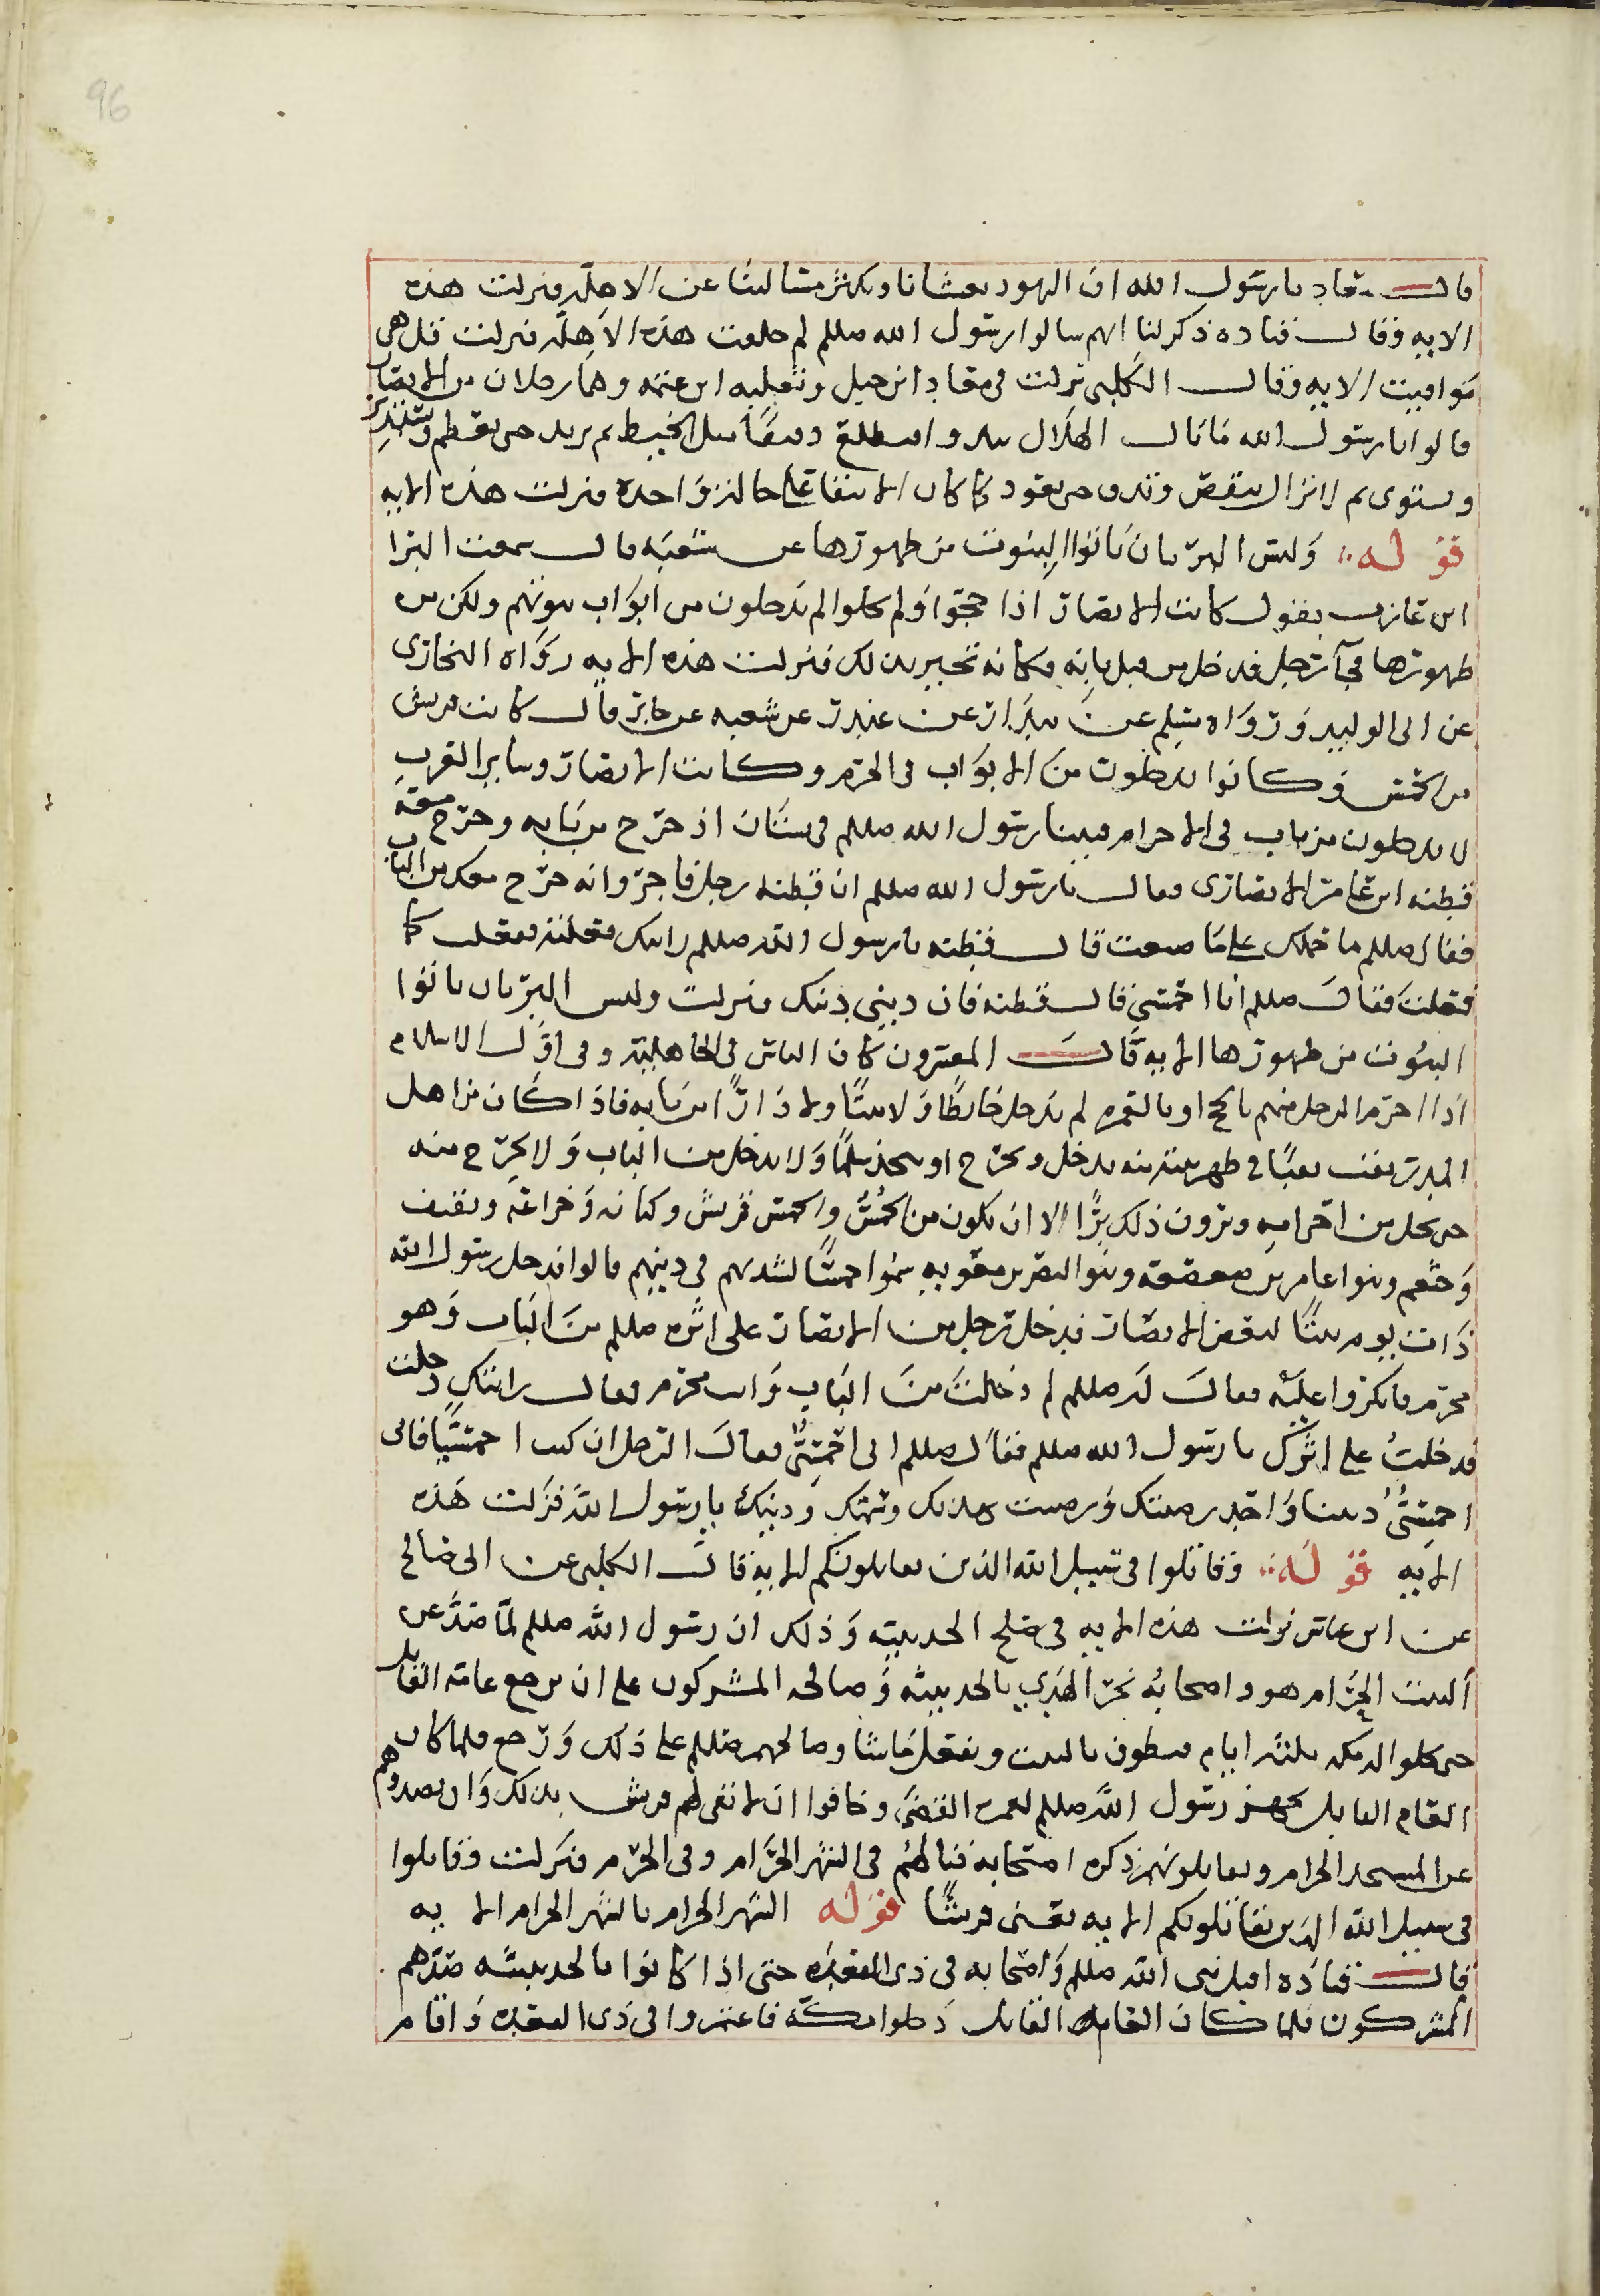 96
قال معاد يا رسول الله ان اليهود تغشانا ويكثر مسالتنا عن الاهلة فنزلت هذه
الايه وقال قتاده ذكر لنا انهم سالوا رسول الله صللم لم خلقت هذه الاهلة فنزلت قل هي
مواقيت الايه وقال الكلبي نزلت في معاد ابن جبل وثعلبه ابن عنمه وهما رجلان من الانصار
قالوا يا رسول الله ما بال الهلال يبدو فيطلع دقيقا مثل الخيط ثم يزيد حتى يعظم ويستدير
ويستوى ثم لا يزال ينقص ويدق حتى يعود كما كان لا يبقا على حالة واحدة فنزلت هذه الايه
قوله وليس البر بان تاتوا البيوت من ظهورها عن شعبه قال سمعت البرا
ابن عازب يقول كانت الانصار اذا حجوا ولم يخلوا لم يدخلون من ابواب بيوتهم ولكن من
ظهورها فجآ رجل فدخل من قبل بابه فكانه تخير بذلك فنزلت هذه الايه رواه البخارى
عن ابى الوليد ورواه مسلم عن بندار عن غندر عن شعبه عن جابر قال كانت قريش
من الحمس وكانوا يدخلون من الابواب في الحرم وكانت الانصار وساير العرب
لا يدخلون من باب في الاحرام فبينا رسول الله صللم في بستان اذ خرج من بابه وخرج معه
قطبه ابن عامر الانصارى فقال يا رسول الله صللم ان قطبه رجل فاجر وانه خرج معك من الباب
فقال صللم ما حملك على ما صنعت قال قطبه يا رسول الله صللم رايتك فعلته ففعلت كما
فعلت فقال صللم انا احمسي قال قطبه فان ديني دينك فنزلت وليس البر بان تاتوا
البيوت من ظهورها الايه قال المفسرون كان الناس في الجاهلية وفي اول الاسلام
اذا احرم الرجل منهم بالحج او بالعمره لم يدخل حايطا ولا بيتا ولا دارا من بابه فاذا كان من اهل
المدر نقب نقبا في ظهر بيته منه يدخل ويخرج او يتخذ سلما ولا يدخل من الباب ولا يخرج منه
حتى يحل من احرامه ويرون ذلك برا الا ان يكون من الحمس والحمس قريش وكنانه وخزاعه وثقيف
وخثعم وبنوا عامر بن صعصعه وبنوا النضر بن معويه سموا حمسا لشدتهم في دينهم قالوا فدخل رسول الله
ذات يوم بيتا لبعض الانصار فدخل رجل من الانصار على اثره صللم من الباب وهو
محرم فانكروا عليه فقال له صللم لم دخلت من الباب وانت محرم فقال رايتك دخلت
فدخلت على اثرك يا رسول الله صللم فقال صللم اني احمسي فقال الرجل ان كنت احمسيا فاني
احمسي ديننا واحد رضيتك ورضيت بهديك وسمتك ودينك يا رسول الله فنزلت هذه
الايه قوله وقاتلوا في سبيل الله الذين يقاتلونكم الايه قال الكلبي عن ابى صالح
عن ابن عباس نزلت هذه الايه في صلح الحديبيه وذلك ان رسول الله صللم لما صد عن
البيت الحرام هو واصحابه نحر الهدي بالحديبيه وصالحه المشركون على ان يرجع عامه القابل
حتى يخلوا له مكه ثلثه ايام فيطوف بالبيت ويفعل ما شا وصالحهم صللم على ذلك ورجع فلما كان
العام القابل تجهز رسول الله صللم لعمرة القضى وخافوا ان لا تفى لهم قريش بذلك وان يصدوهم
عن المسجد الحرام ويقاتلونهم وكره اصحابه قتالهم في الشهر الحرام وفي الحرم فنزلت وقاتلوا
في سبيل الله الذين يقاتلونكم الايه يعنى قريشا قوله الشهر الحرام بالشهر الحرام الايه
قال قتاده اقبل نبى الله صللم واصحابه في ذى القعده حتى اذا كانوا بالحديبيه صدهم
المشركون فلما كان العام القابل دخلوا مكه فاعتمروا في ذى القعده واقام